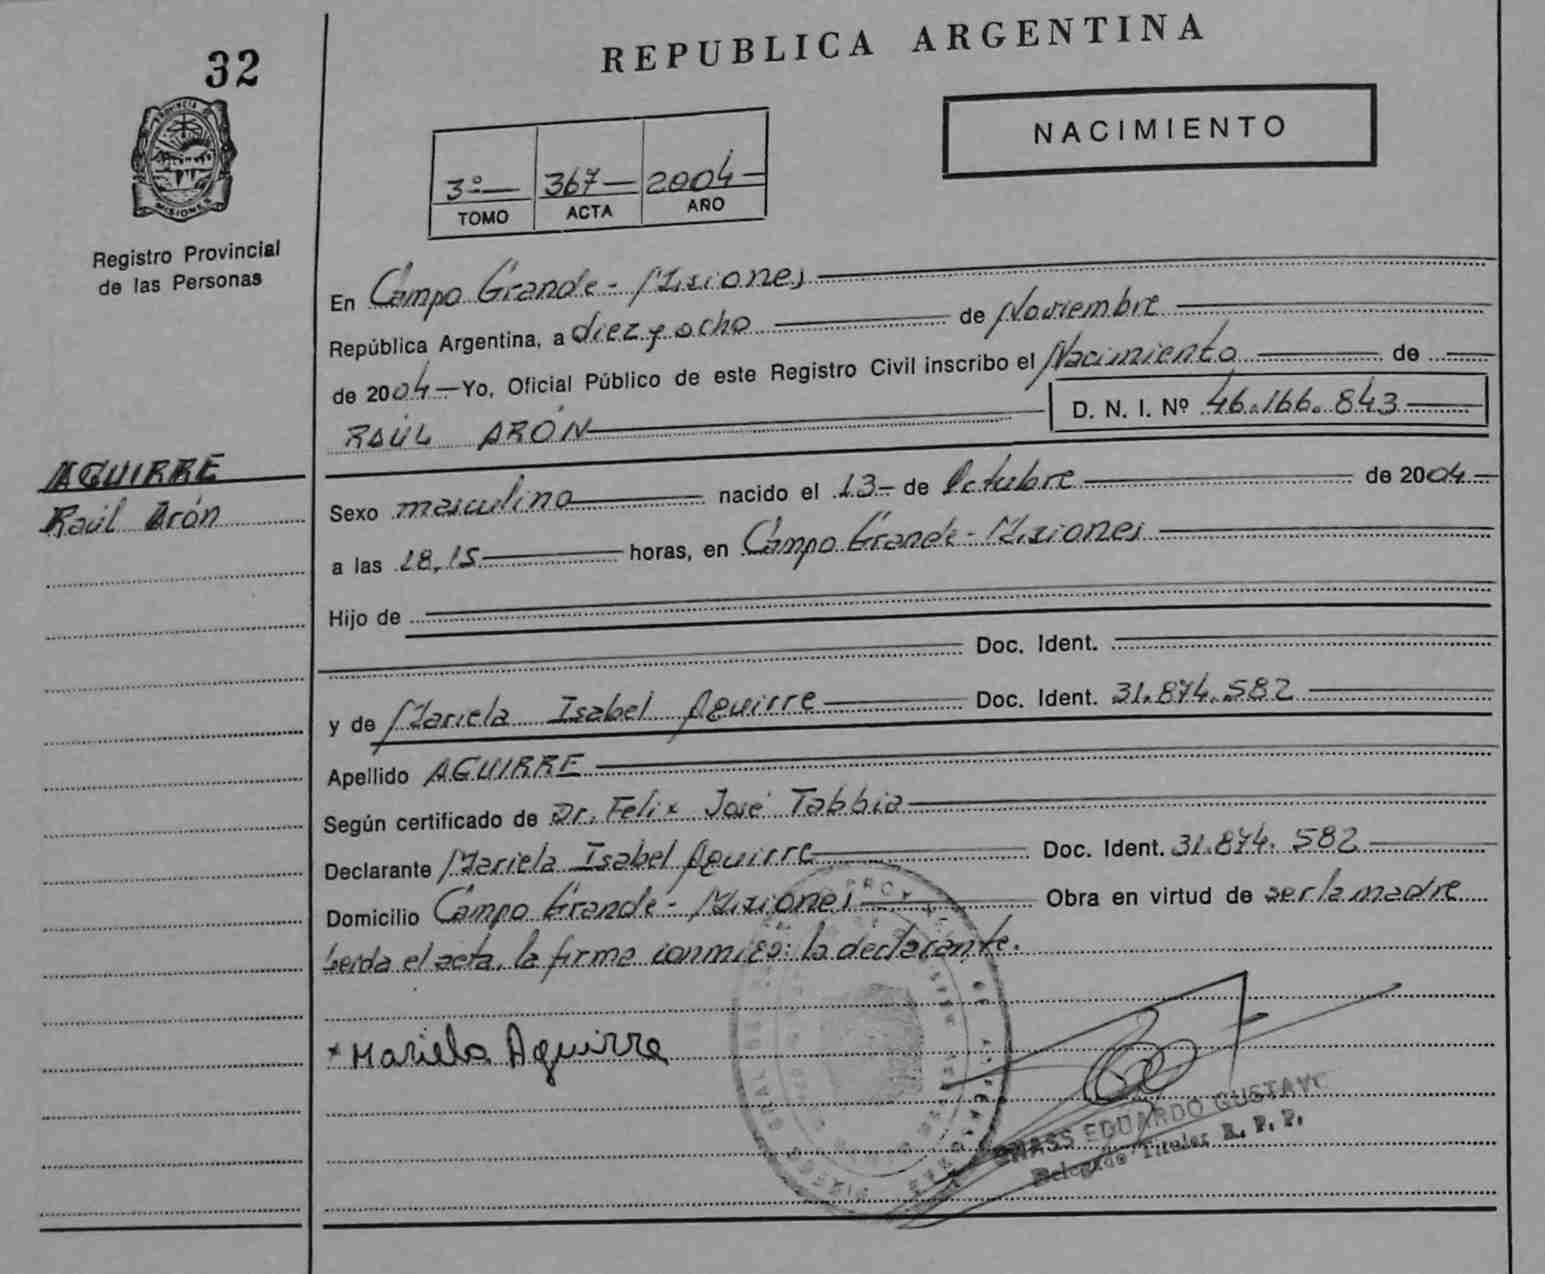 32
REPUBLICA ARGENTINA
NACIMIENTO
3º 367 2004
TOMO ACTA AÑO
PROVINCIA DE
MISIONES
Registro Provincial
de las Personas
En Campo Grande - Misiones
República Argentina, a diez y ocho de Noviembre
de 2004 Yo, Oficial Público de este Registro Civil inscribo el Nacimiento de
RAÚL ARÓN D. N. I. Nº 46.166.843
AGUIRRE
Raúl Arón
Sexo masculino nacido el 13 de Octubre de 2004
a las 18,15 horas, en Campo Grande - Misiones
Hijo de
Doc. Ident.
y de Mariela Isabel Aguirre Doc. Ident. 31.874.582
Apellido AGUIRRE
Según certificado de Dr. Felix José Tabbia
Declarante Mariela Isabel Aguirre Doc. Ident. 31.874.582
Domicilio Campo Grande - Misiones Obra en virtud de ser la madre
Leida el acta, la firma conmigo: la declarante.
Mariela Aguirre
EDUARDO GUSTAVO
Delegado Titular R. P. P.